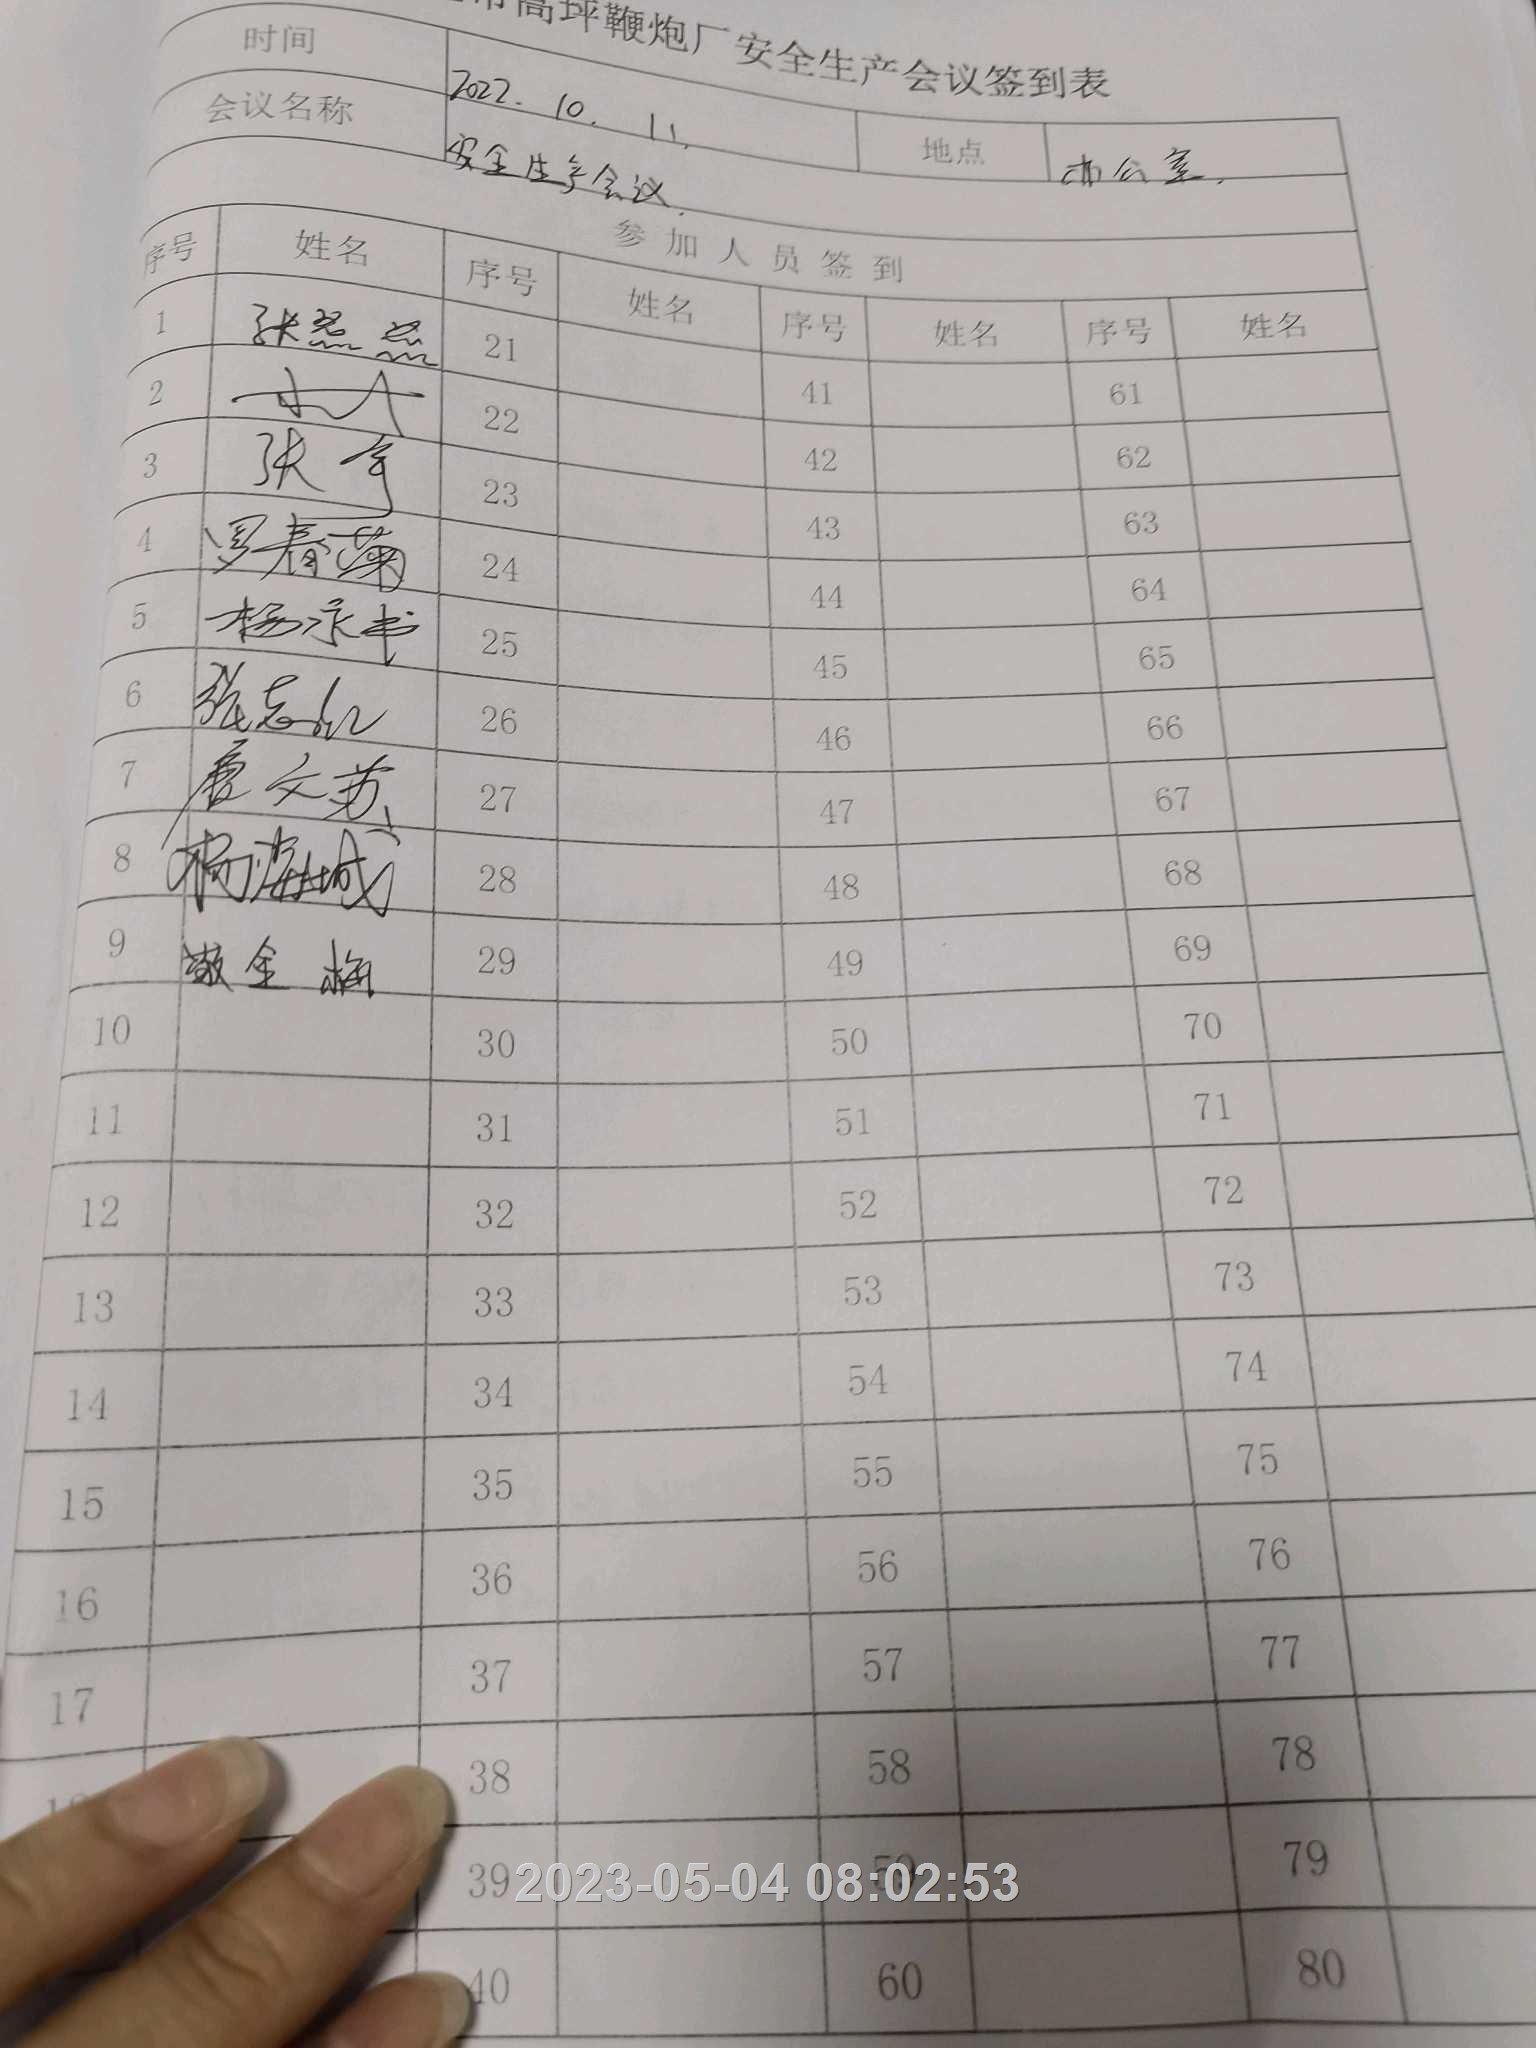 市高坪鞭炮厂安全生产会议签到表
时间 2022. 10. 11. 地点 办公室.
会议名称 安全生产会议.
参加人员签到
序号 姓名 序号 姓名 序号 姓名 序号 姓名
1 21 41 61
2 22 42 62
3 张 23 43 63
4 罗春菊 24 44 64
5 杨永书 25 45 65
6 张志 26 46 66
7 唐文芳 27 47 67
8 杨海城 28 48 68
9 敬金梅 29 49 69
10 30 50 70
11 31 51 71
12 32 52 72
13 33 53 73
14 34 54 74
15 35 55 75
16 36 56 76
17 37 57 77
38 58 78
39 59 79
40 60 80
2023-05-04 08:02:53